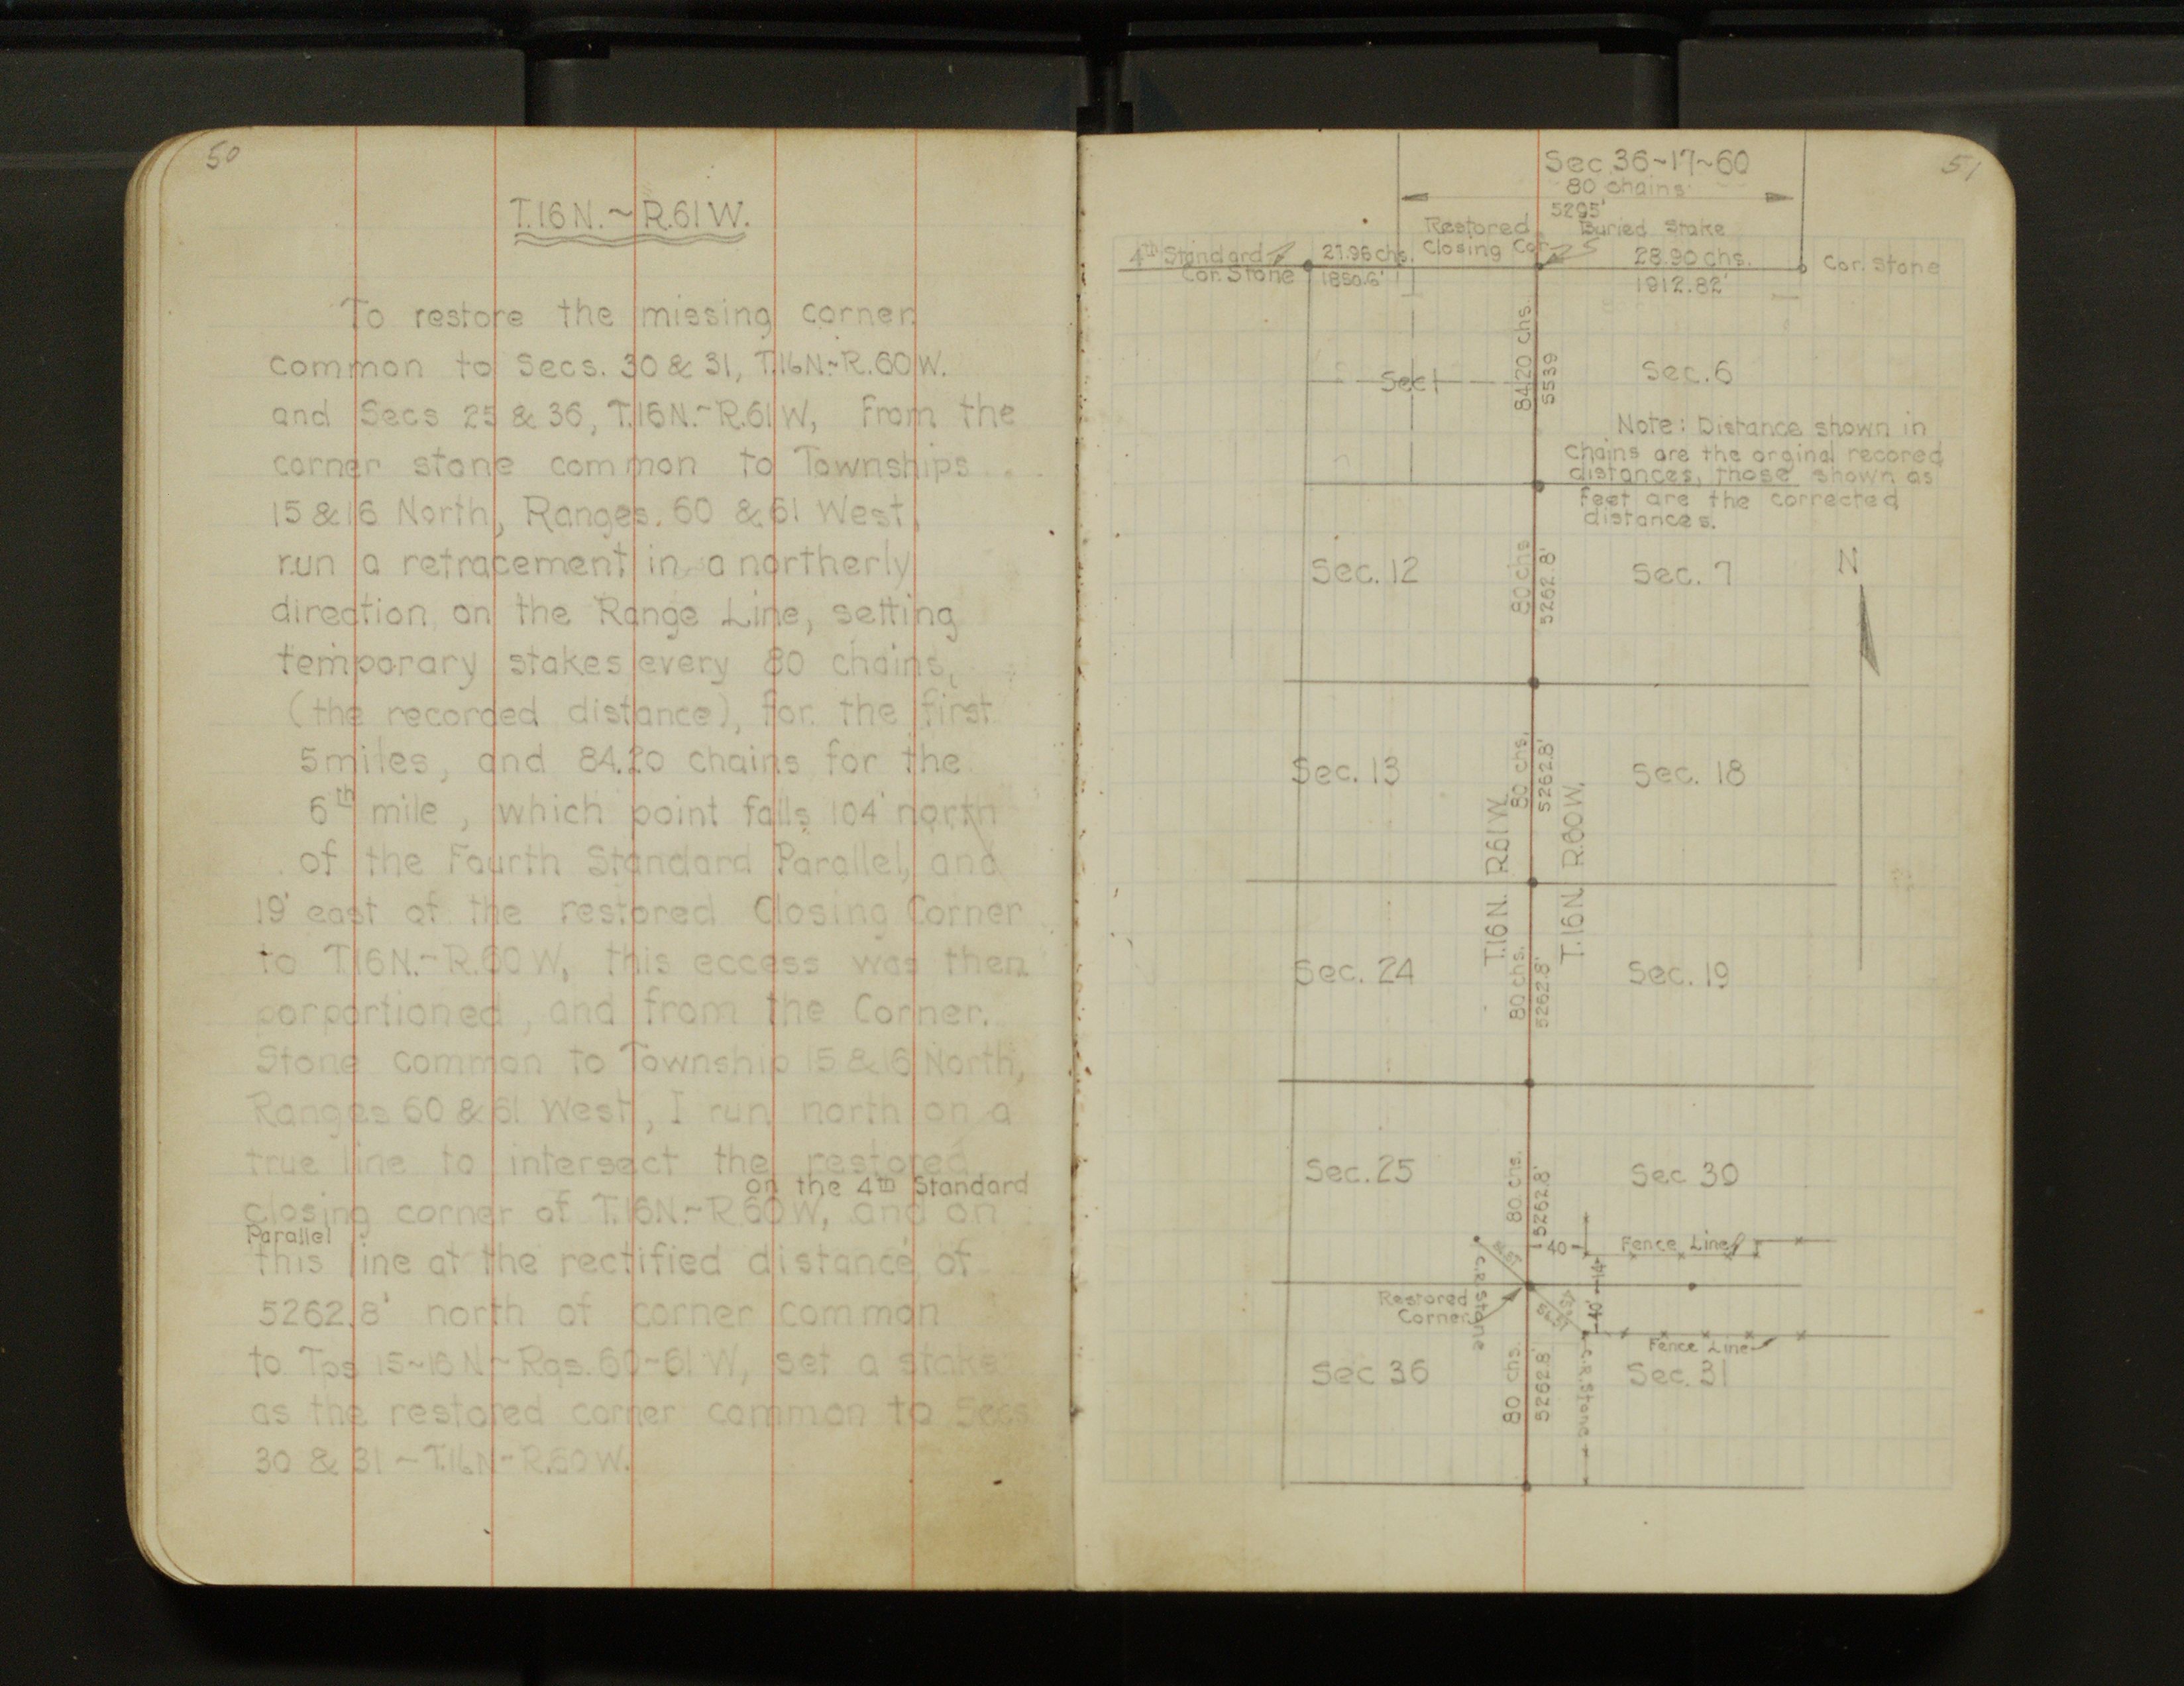 50
T.16N.~R.61W.
To restore the missing corner
common to Secs. 30 & 31, T.16N.~R.60W.
and Secs 25 & 36, T.16N.~R.61W, from the
corner stone common to Townships
15 & 16 North, Ranges. 60 & 61 West,
run a retracement in a northerly
direction on the Range Line, setting
temporary stakes every 80 chains,
(the recorded distance), for the first
5 miles, and 84.20 chains for the
6th mile, which point falls 104' north
of the Fourth Standard Parallel, and
19' east of the restored Closing Corner
to T.16N.~R.60W, this eccess was then
porportioned, and from the Corner.
Stone common to Township 15 & 16 North,
Ranges 60 & 61 West, I run north on a
true line to intersect the restored
on the 4th Standard
closing corner of T.16N.~R.60W, and on
Parallel
this line at the rectified distance of
5262.8' north of corner common
to Tps 15~16N~Rgs. 60~61 W, set a stake
as the restored corner common to Secs
30 & 31 ~ T.16N~R.60W.
51
Sec 36~17~60
80 chains
5295'
Restored Buried Stake
4th Standard 27.96 chs. Closing Cor 28.90 chs. Cor. Stone
Cor. Stone 1850.6' 1912.82'
84.20 chs.
5539
Sec 1 Sec. 6
Note: Distance shown in
chains are the orginal recored
distances, those shown as
feet are the corrected
distances.
N
Sec. 12 80 chs 5262.8' Sec. 7
Sec. 13 80 chs, 5262.8' Sec. 18
T.16N. R61W.
T.16N. R.60W.
Sec. 24 80 chs. 5262.8' Sec. 19
Sec. 25 80 chs. 5262.8' Sec 30
40 Fence Line
C.R. Stone
14
Restored
Corner
40'
Fence Line
Sec 36 80 chs. 5262.8' Sec. 31
C.R. Stone